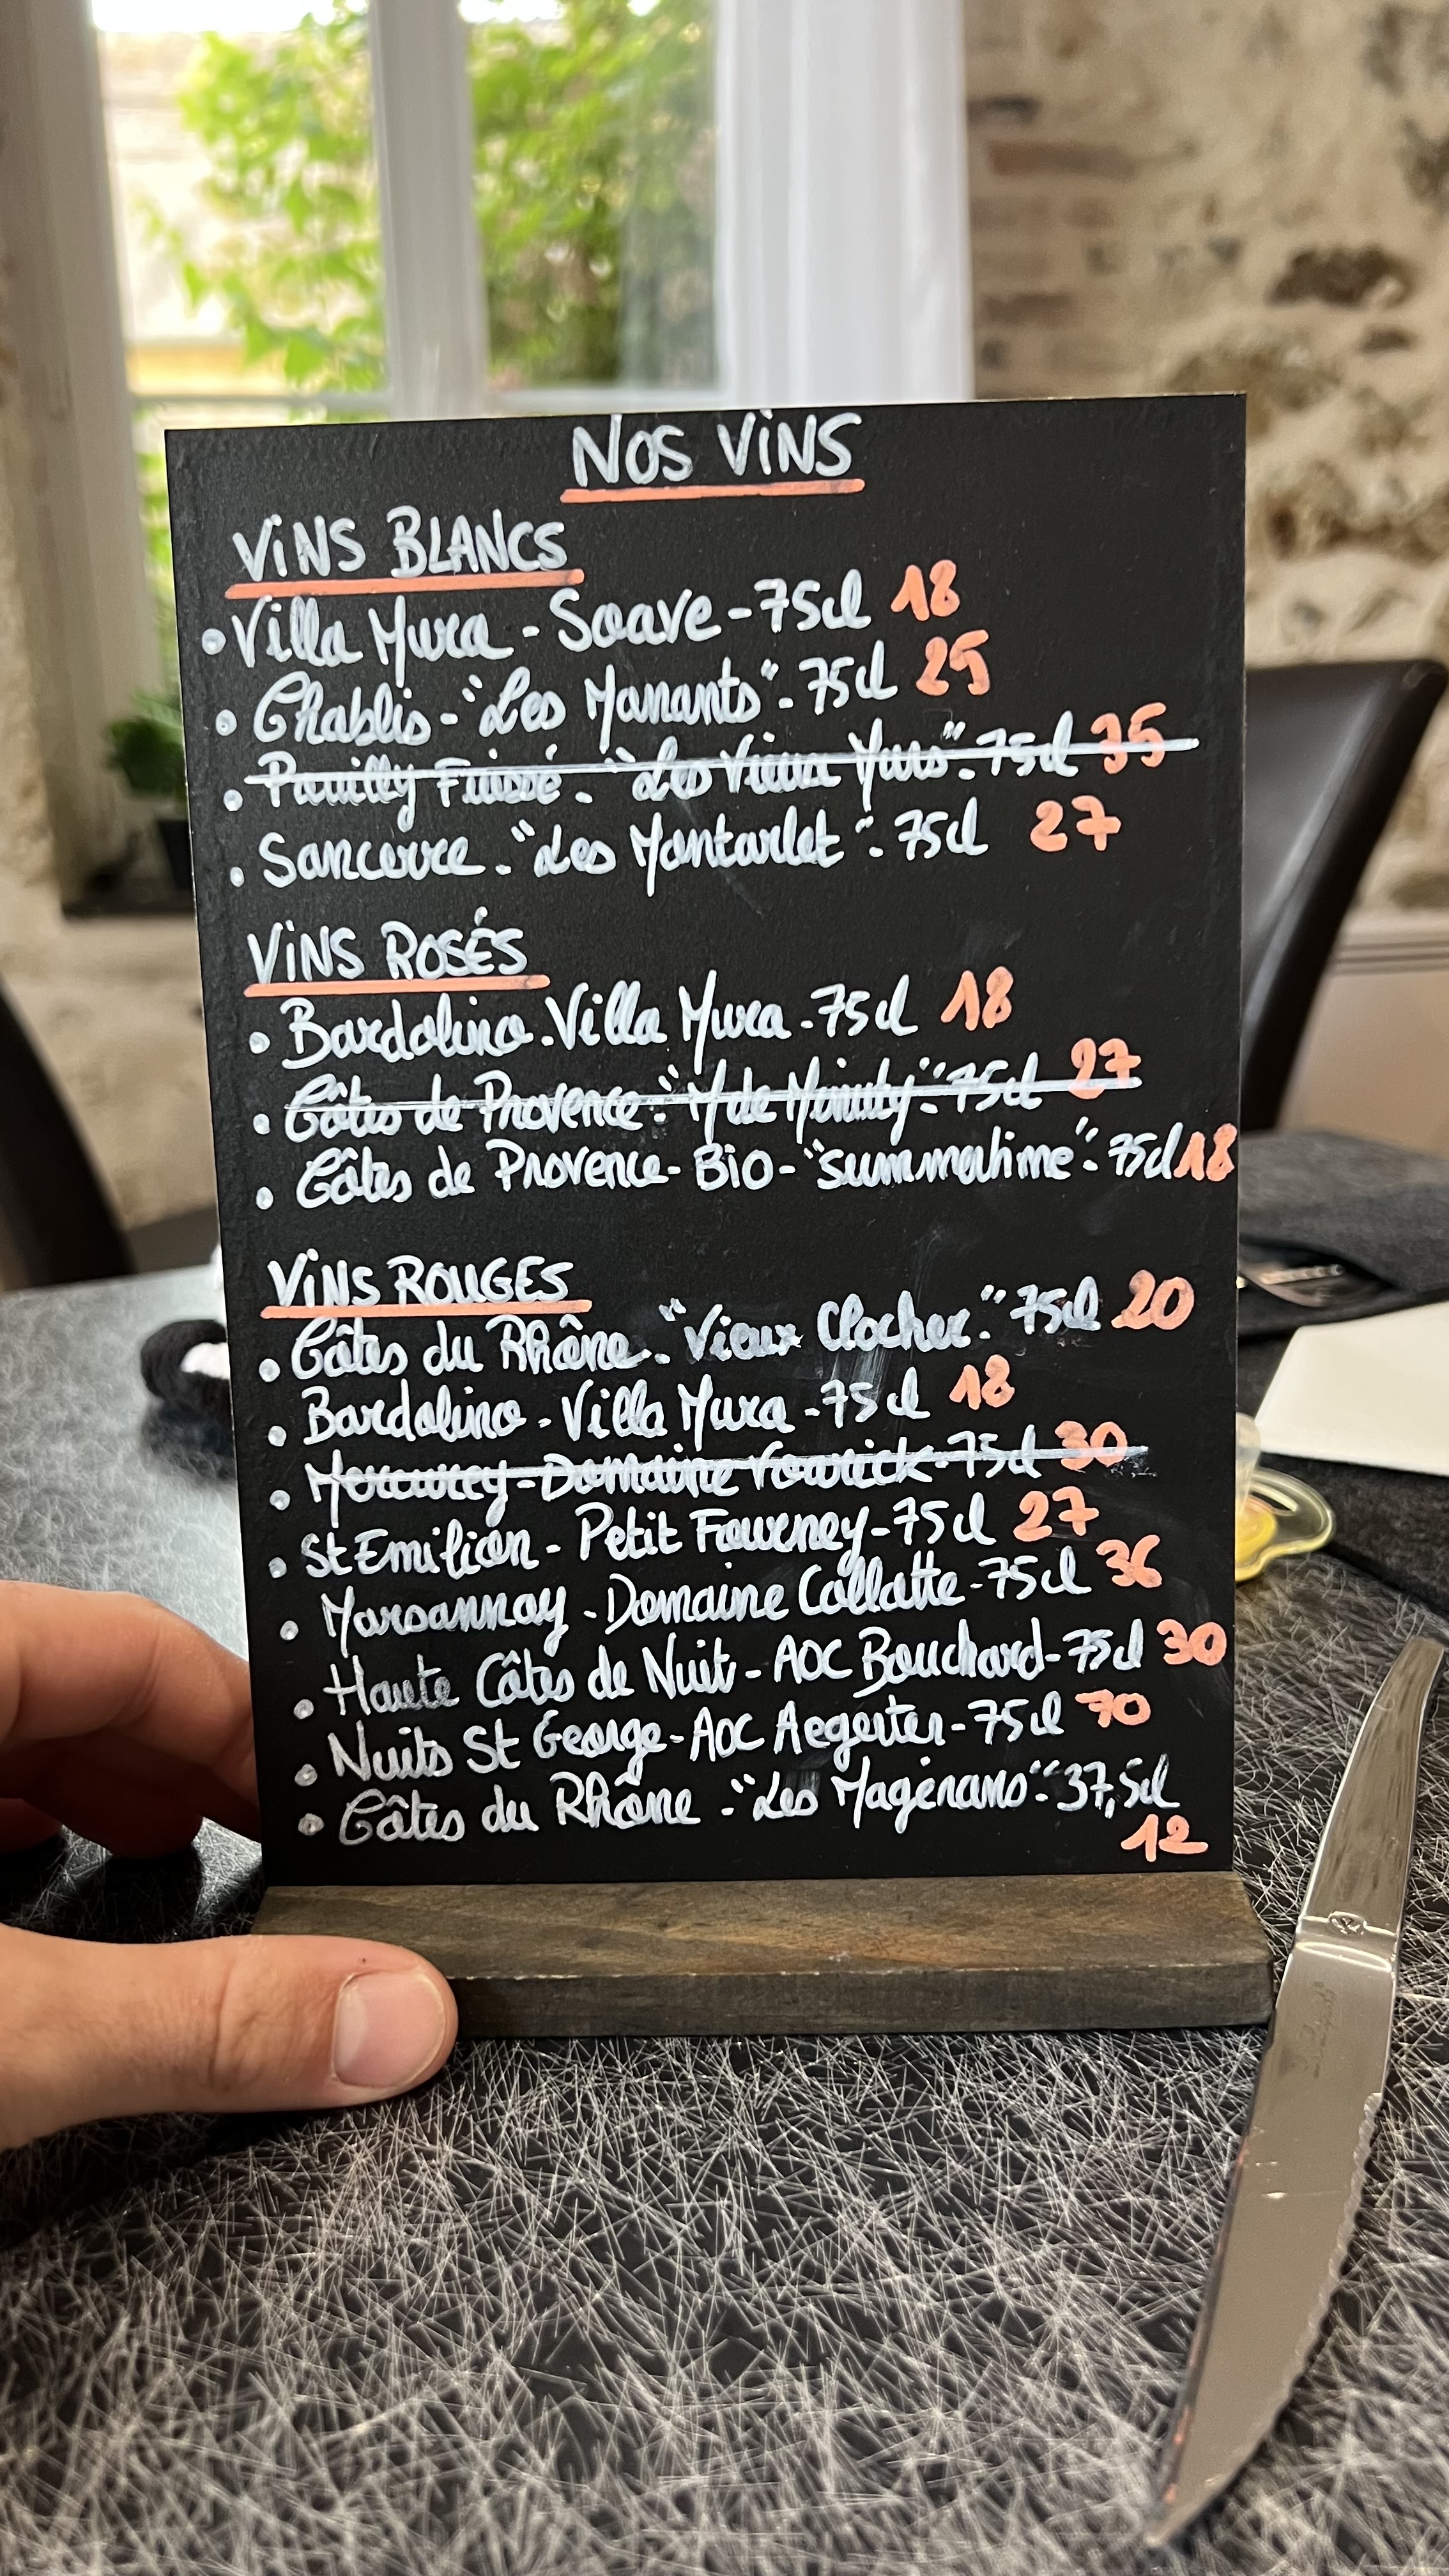 NOS VINS
VINS BLANCS
• Villa Mura - Soave - 75cl 18
• Chablis - "Les Manants" - 75cl 25
• Pouilly Fuissé - "Les Vieux Murs" - 75cl 35
• Sancerre - "Les Montarlet" - 75cl 27
VINS ROSÉS
• Bardolino - Villa Mura - 75cl 18
• Côtes de Provence - "M de Minuty" - 75cl 27
• Côtes de Provence - BIO - "Summertime" - 75cl 18
VINS ROUGES
• Côtes du Rhône - "Vieux Clocher" - 75cl 20
• Bardolino - Villa Mura - 75cl 18
• Mercurey - Domaine - 75cl 30
• St Emilion - Petit Fourney - 75cl 27
• Marsannay - Domaine Collotte - 75cl 36
• Haute Côtes de Nuit - AOC Bouchard - 75cl 30
• Nuits St George - AOC Aegerter - 75cl 70
• Côtes du Rhône - "Les Magérans" - 37,5cl
12